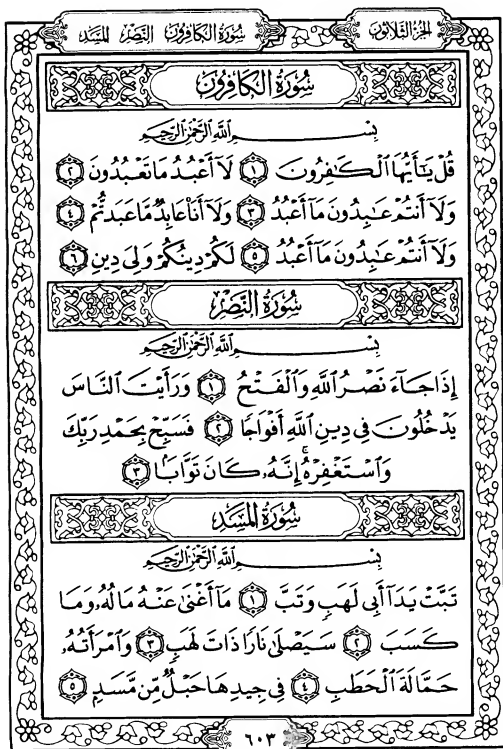 الجزء الثلاثون
سورة الكافرون النصر المسد
سُورَةُ الكَافِرُونَ
بِسْمِ ٱللَّهِ ٱلرَّحْمَٰنِ ٱلرَّحِيمِ
قُلْ يَٰٓأَيُّهَا ٱلْكَٰفِرُونَ ۝١ لَآ أَعْبُدُ مَا تَعْبُدُونَ ۝٢
وَلَآ أَنتُمْ عَٰبِدُونَ مَآ أَعْبُدُ ۝٣ وَلَآ أَنَا۠ عَابِدٌ مَّا عَبَدتُّمْ ۝٤
وَلَآ أَنتُمْ عَٰبِدُونَ مَآ أَعْبُدُ ۝٥ لَكُمْ دِينُكُمْ وَلِىَ دِينِ ۝٦
سُورَةُ النَّصْرِ
بِسْمِ ٱللَّهِ ٱلرَّحْمَٰنِ ٱلرَّحِيمِ
إِذَا جَآءَ نَصْرُ ٱللَّهِ وَٱلْفَتْحُ ۝١ وَرَأَيْتَ ٱلنَّاسَ
يَدْخُلُونَ فِى دِينِ ٱللَّهِ أَفْوَاجًا ۝٢ فَسَبِّحْ بِحَمْدِ رَبِّكَ
وَٱسْتَغْفِرْهُ ۚ إِنَّهُۥ كَانَ تَوَّابًۢا ۝٣
سُورَةُ المَسَدِ
بِسْمِ ٱللَّهِ ٱلرَّحْمَٰنِ ٱلرَّحِيمِ
تَبَّتْ يَدَآ أَبِى لَهَبٍ وَتَبَّ ۝١ مَآ أَغْنَىٰ عَنْهُ مَالُهُۥ وَمَا
كَسَبَ ۝٢ سَيَصْلَىٰ نَارًا ذَاتَ لَهَبٍ ۝٣ وَٱمْرَأَتُهُۥ
حَمَّالَةَ ٱلْحَطَبِ ۝٤ فِى جِيدِهَا حَبْلٌ مِّن مَّسَدٍۭ ۝٥
٦٠٣